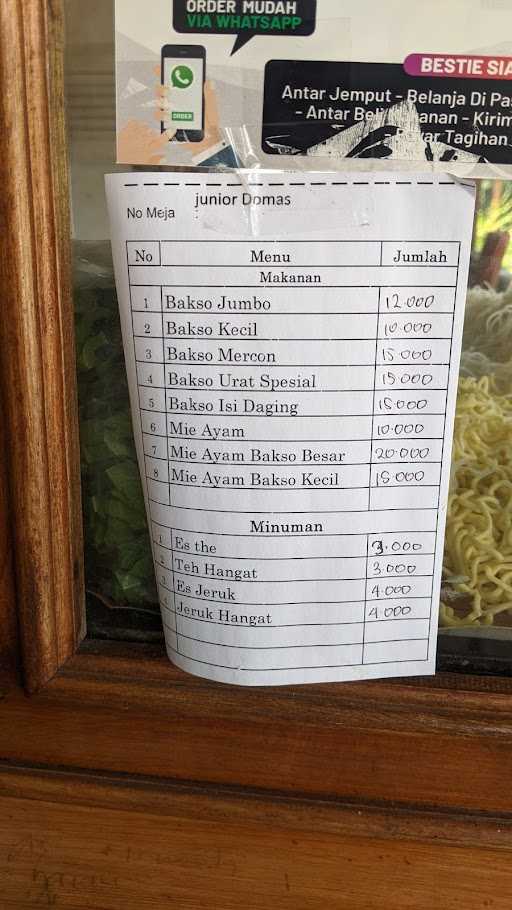 ORDER MUDAH
VIA WHATSAPP
ORDER
BESTIE SIA
Antar Jemput - Belanja Di Pa
- Antar Bel anan - Kirim
- ar Tagihan
junior Domas
No Meja :
No Menu Jumlah
Makanan
1 Bakso Jumbo 12.000
2 Bakso Kecil 10.000
3 Bakso Mercon 15.000
4 Bakso Urat Spesial 15.000
5 Bakso Isi Daging 15.000
6 Mie Ayam 10.000
7 Mie Ayam Bakso Besar 20.000
8 Mie Ayam Bakso Kecil 15.000
Minuman
1 Es the 3.000
2 Teh Hangat 3.000
3 Es Jeruk 4.000
4 Jeruk Hangat 4.000